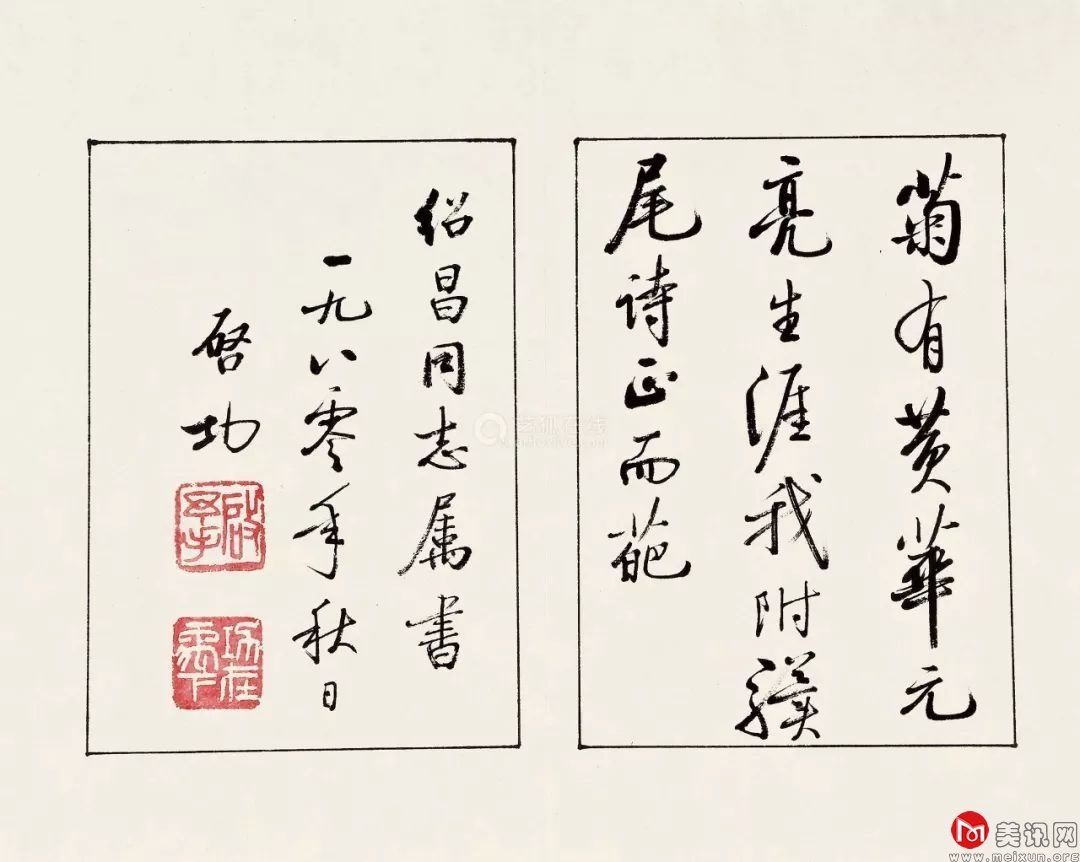 菊有黄華元
亮生涯我附骥
尾诗正而葩
绍昌同志属书
一九八零年秋日
启功
美讯网
www.meixun.org